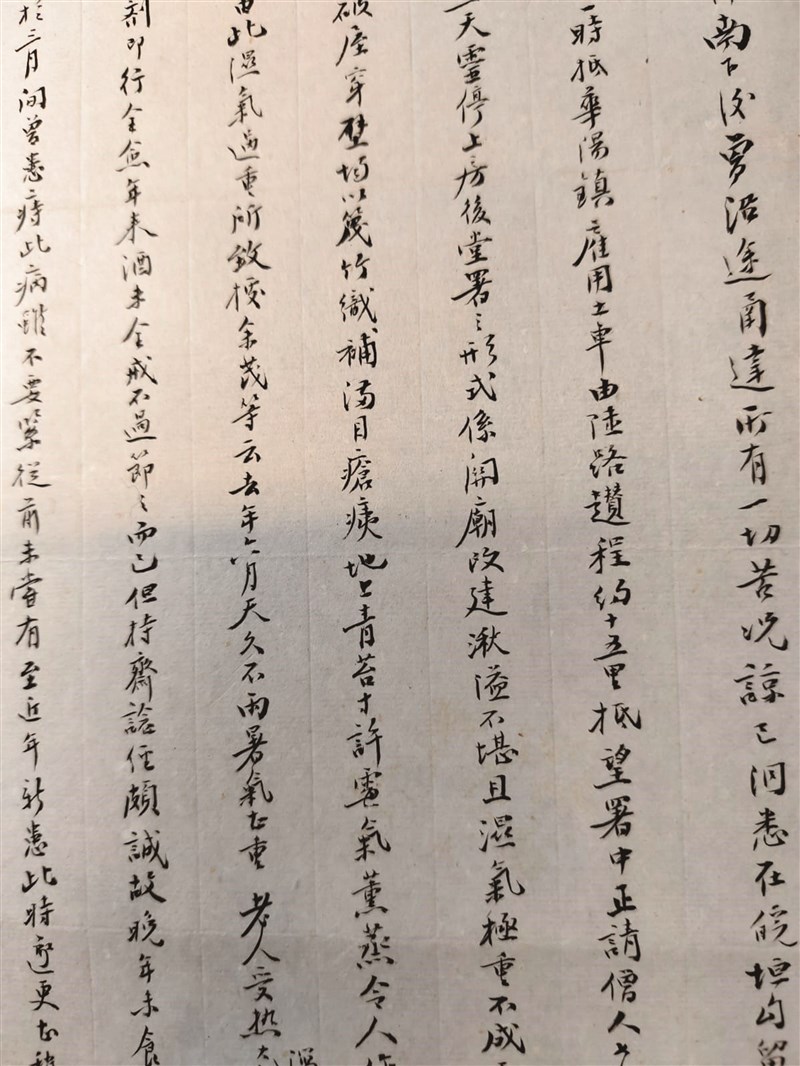 南下後曾沿途函達所有一切苦况諒已洞悉在皖垣勾留
時抵華陽鎮雇用土車由陸路趲程約十五里抵望署中正請僧人
天靈停上房後堂署之形式係關廟改建湫溢不堪且濕氣極重不成
破屋穿壁均以篾竹織補滿目瘡痍地上青苔寸許霉氣薰蒸令人作
由此濕氣過重所致據余茂等云去年六月天久不雨暑氣甚重 老人受熱
劑即行全愈年来酒未全戒不過節之而已但持齋諗經頗誠故晚年未食
於三月間曾患痔此病雖不要緊從前未嘗有至近年新患此時遷更甚